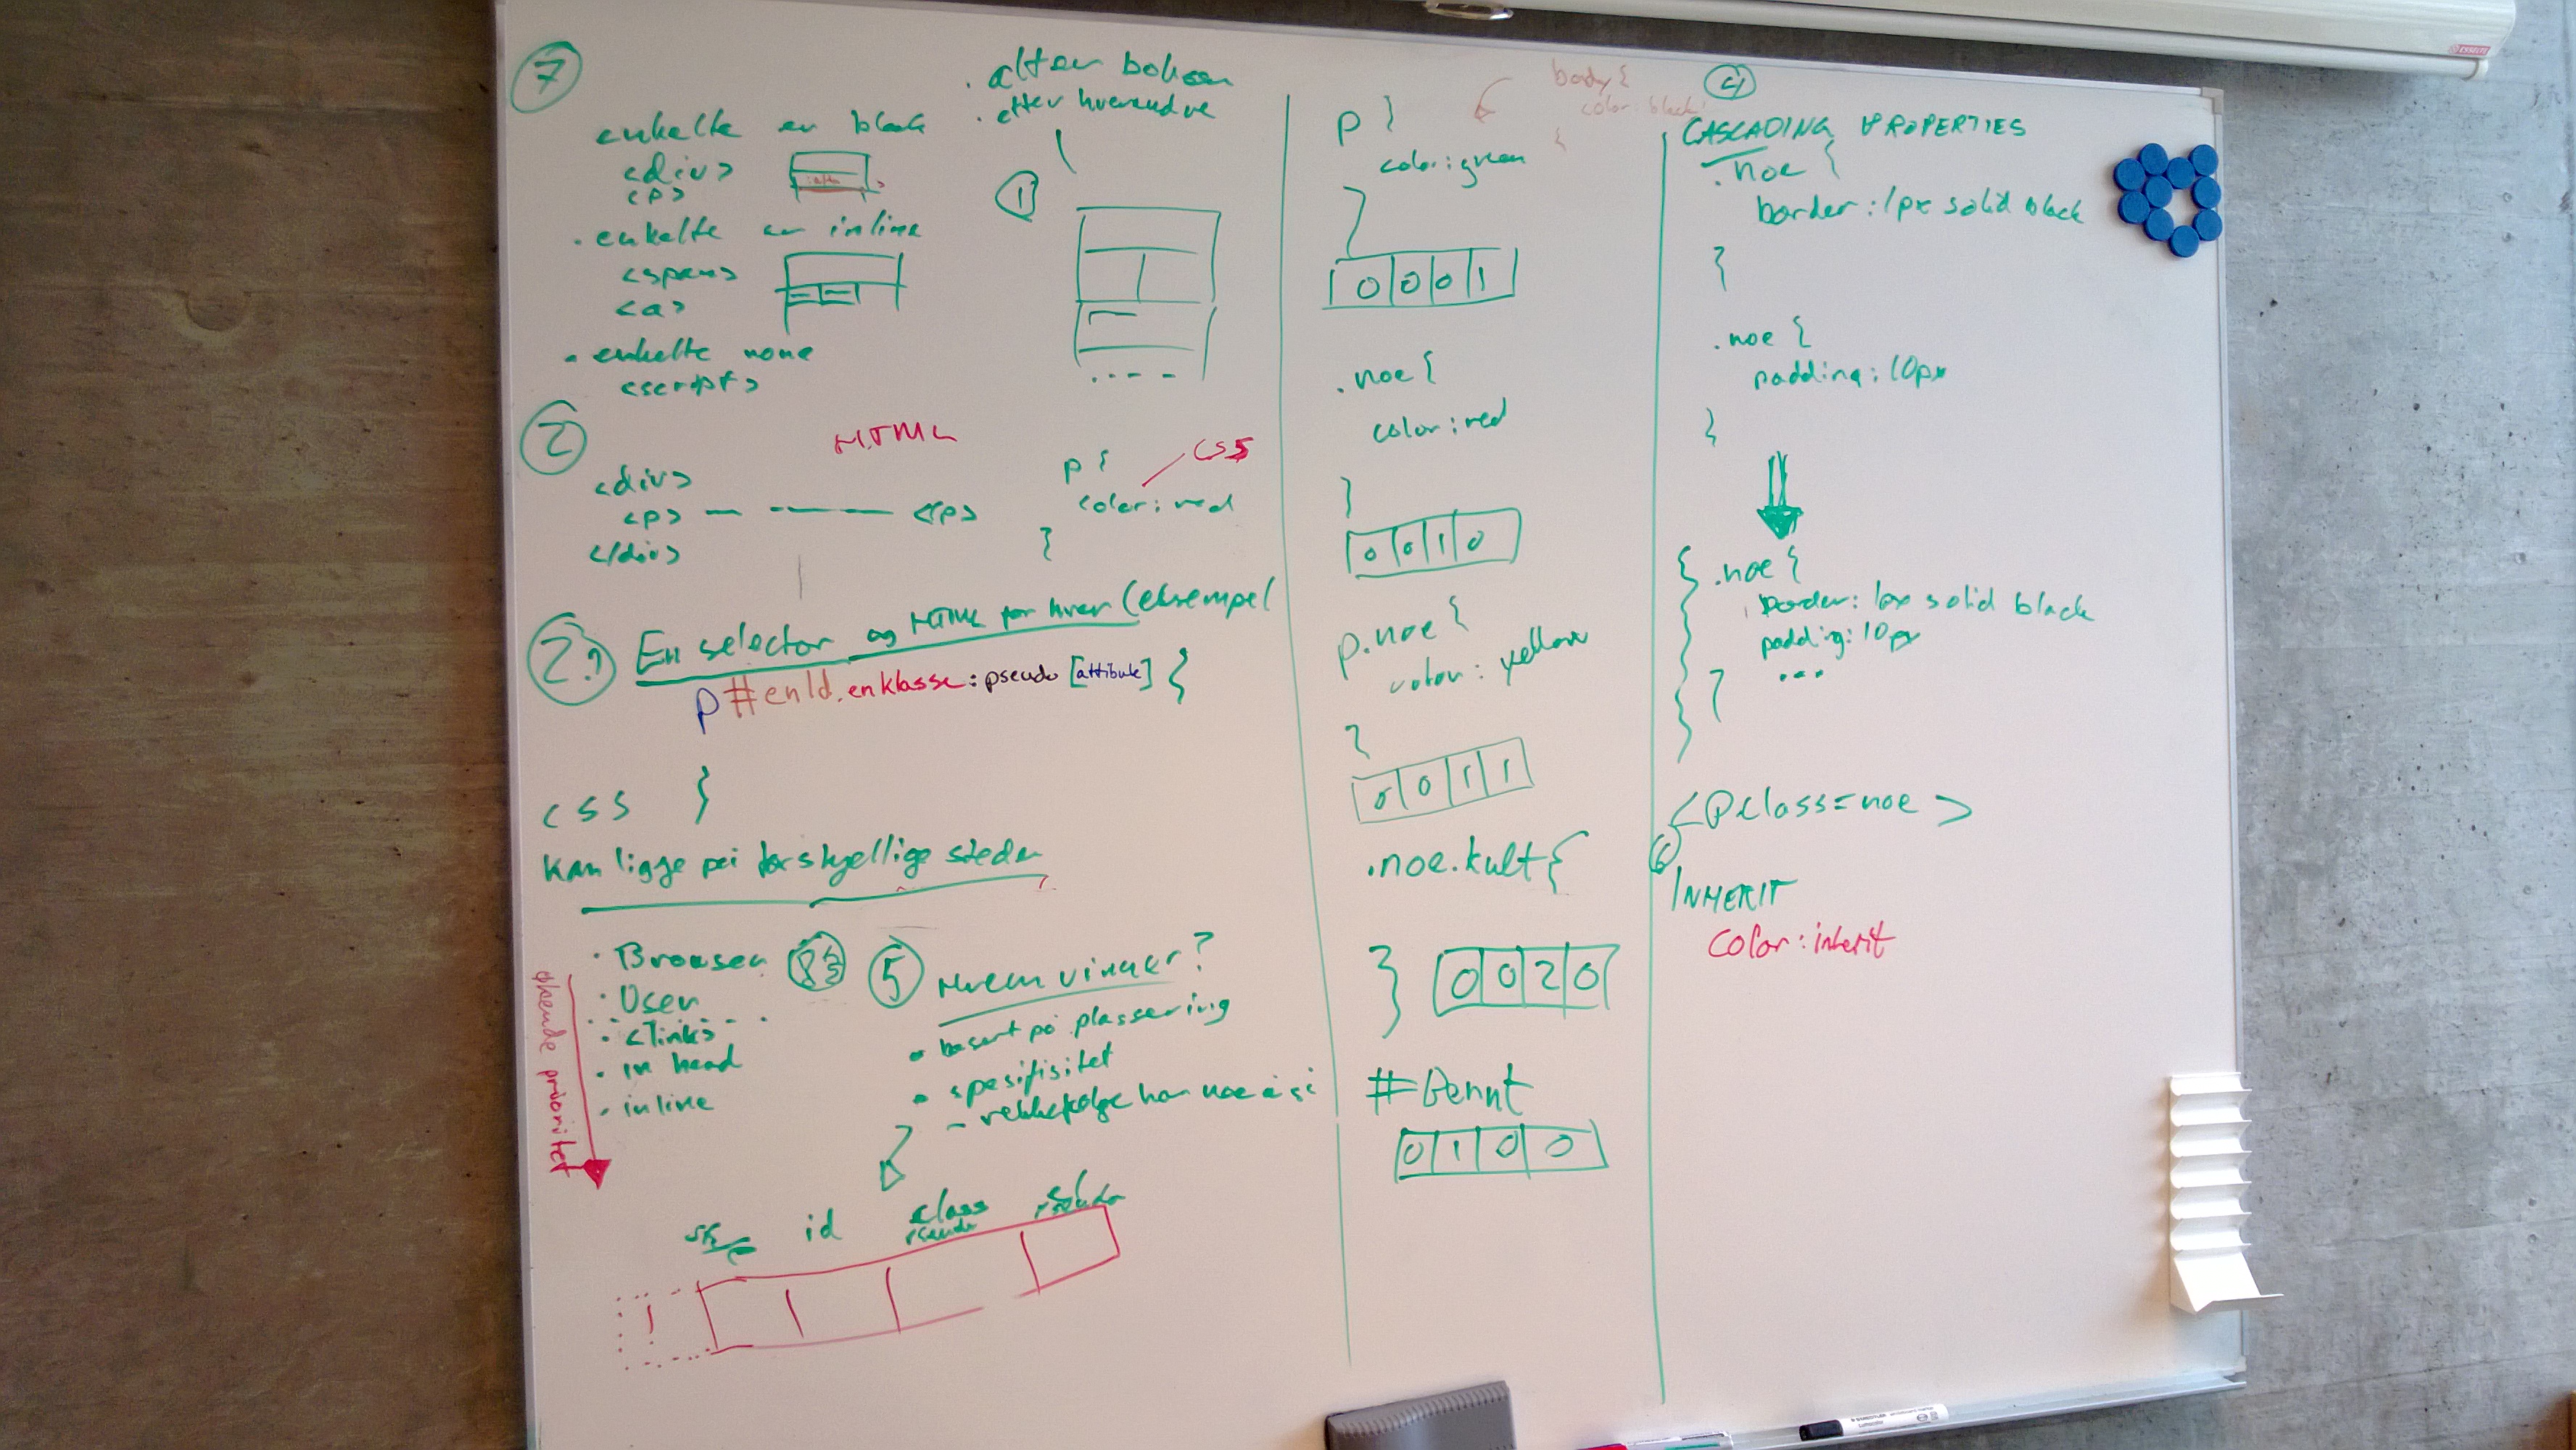 7
enkelte er block
<div>
<p>
. enkelte er inline
<span>
<a>
. enkelte none
<script>
. alt er bokser
. etter hverandre
1
2
HTML
<div>
<p> — - — — <p>
</div>
CSS
p {
color: red
}
2.1
En selector og HTML for hver (eksempel
p#enId.enklasse:pseudo [attibute] {
}
CSS
Kan ligge på forskjellige steder
. Browser
. User
. <link>
. in head
. inline
økende prioritet
5
Hvem vinner?
. basert på plassering
. spesifisitet
- rekkefølge har noe å si
id
class
pseudo
!
body {
color: black
}
p {
color: green
}
0 0 0 1
.noe {
color: red
}
0 0 1 0
p.noe {
color: yellow
}
0 0 1 1
.noe.kult {
} 0 0 2 0
#Bernt
0 1 0 0
4
CASCADING PROPERTIES
.noe {
border: 1px solid black
}
.noe {
padding: 10px
}
{ .noe {
border: 1px solid black
padding: 10px
...
}
}
<p class=noe >
6
INHERIT
color: inherit
ESSELTE
STAEDTLER